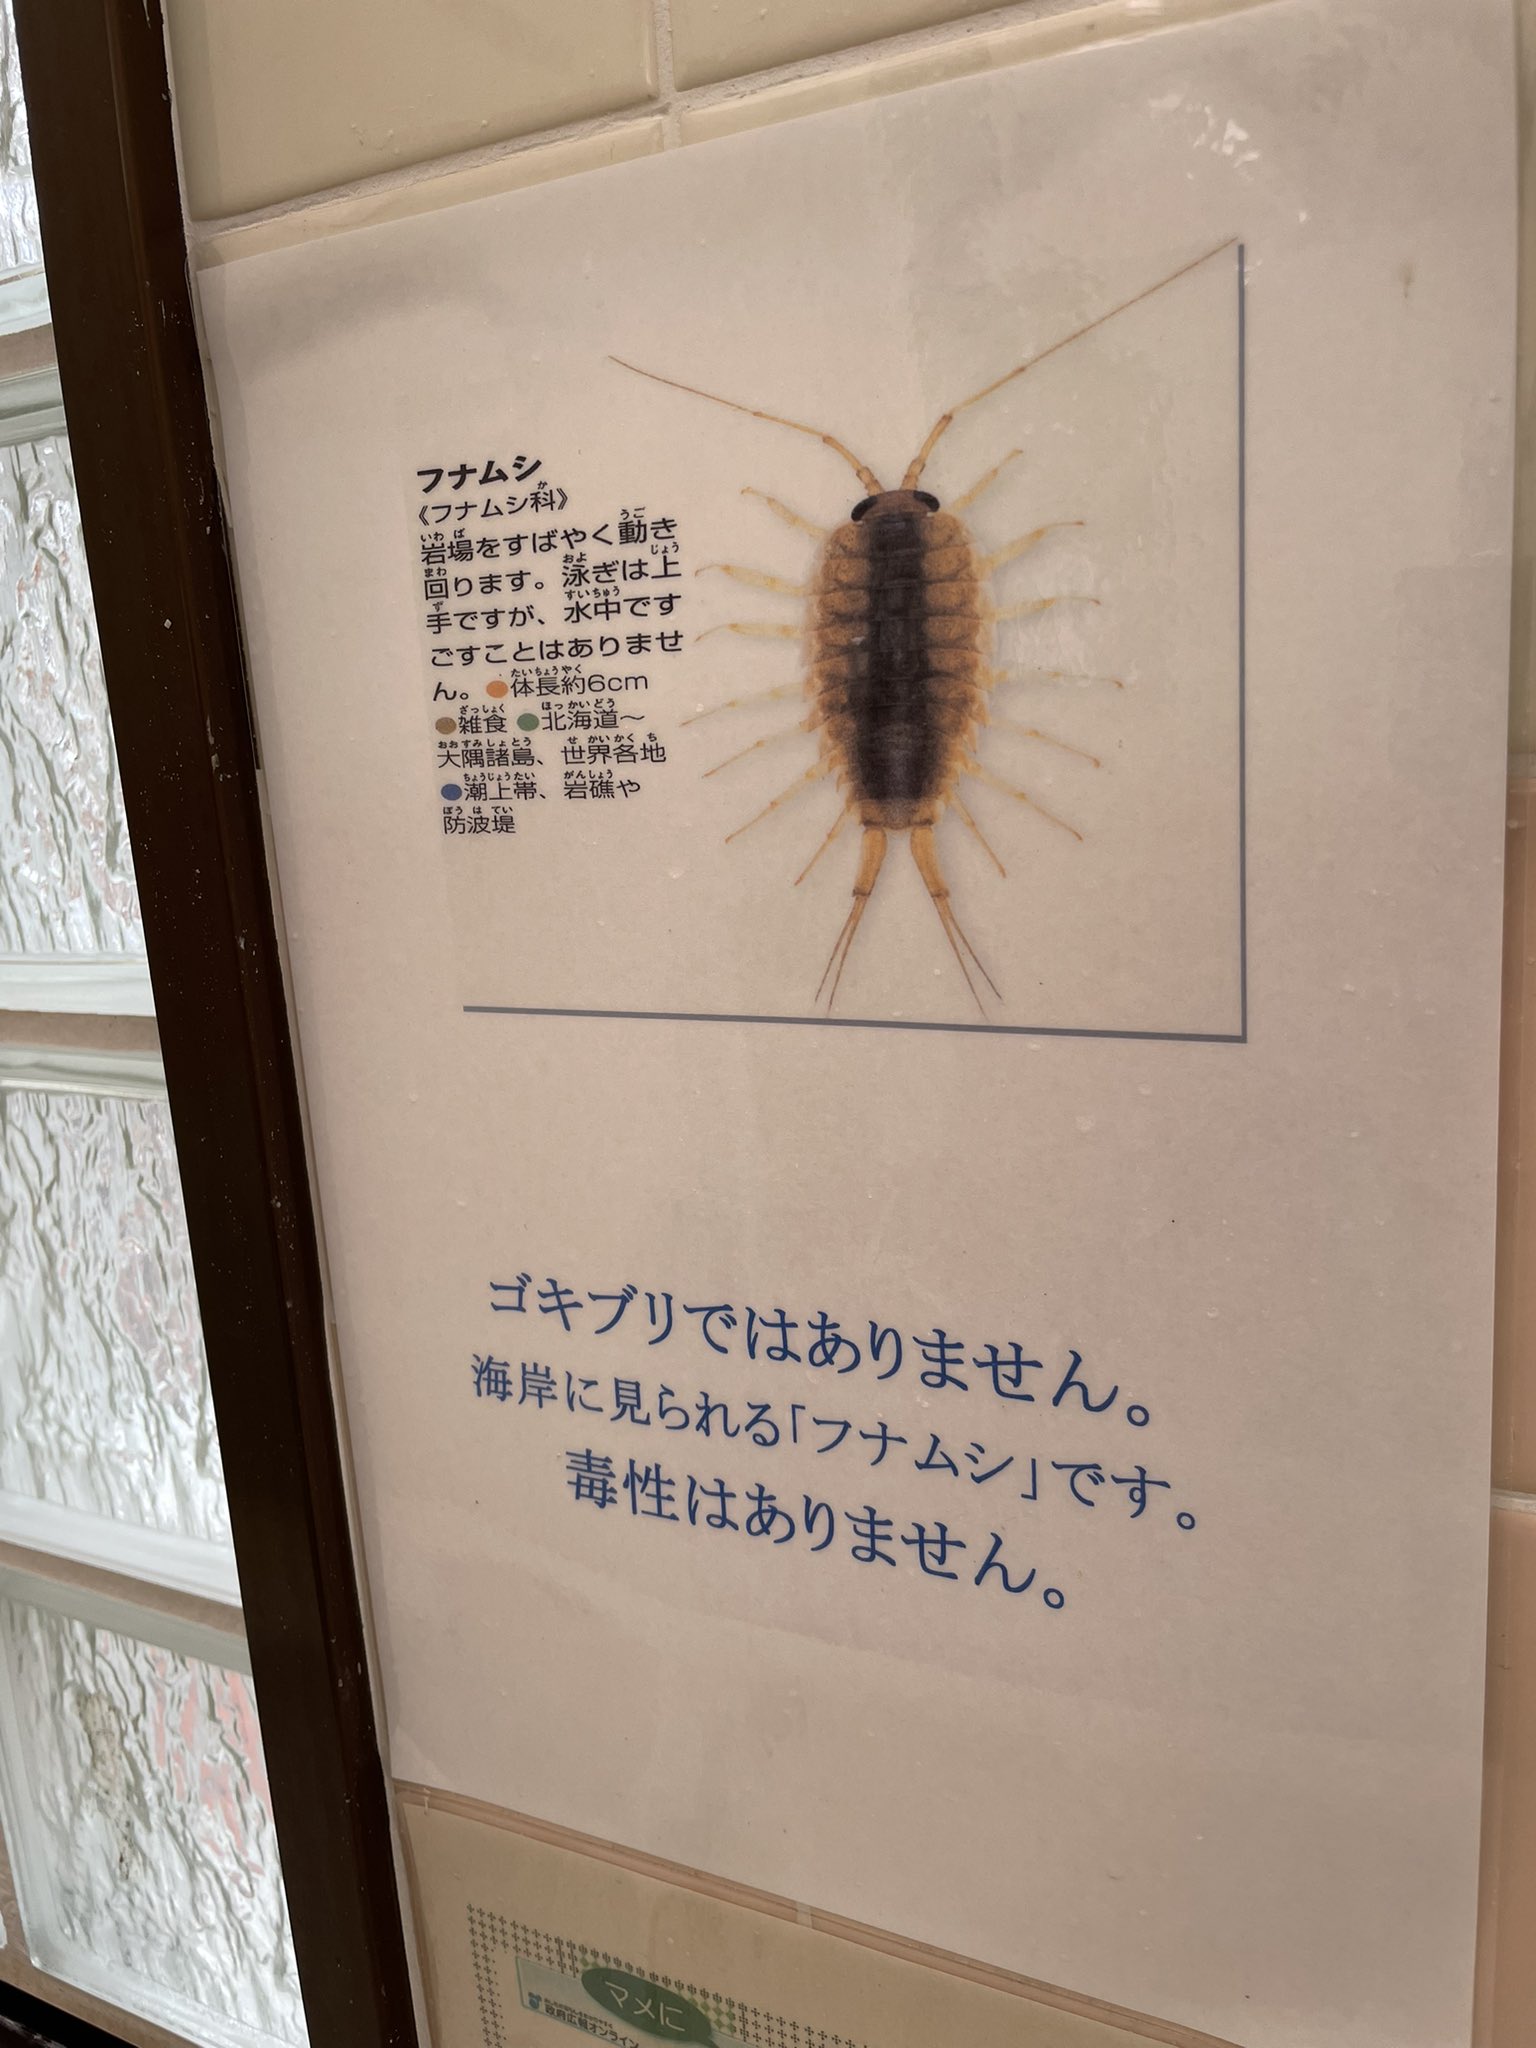 フナムシ
《フナムシ科》
岩場をすばやく動き
回ります。泳ぎは上
手ですが、水中です
ごすことはありませ
ん。●体長約6cm
●雑食●北海道〜
大隅諸島、世界各地
●潮上帯、岩礁や
防波堤
ゴキブリではありません。
海岸に見られる「フナムシ」です。
毒性はありません。
マメに
政府広報オンライン